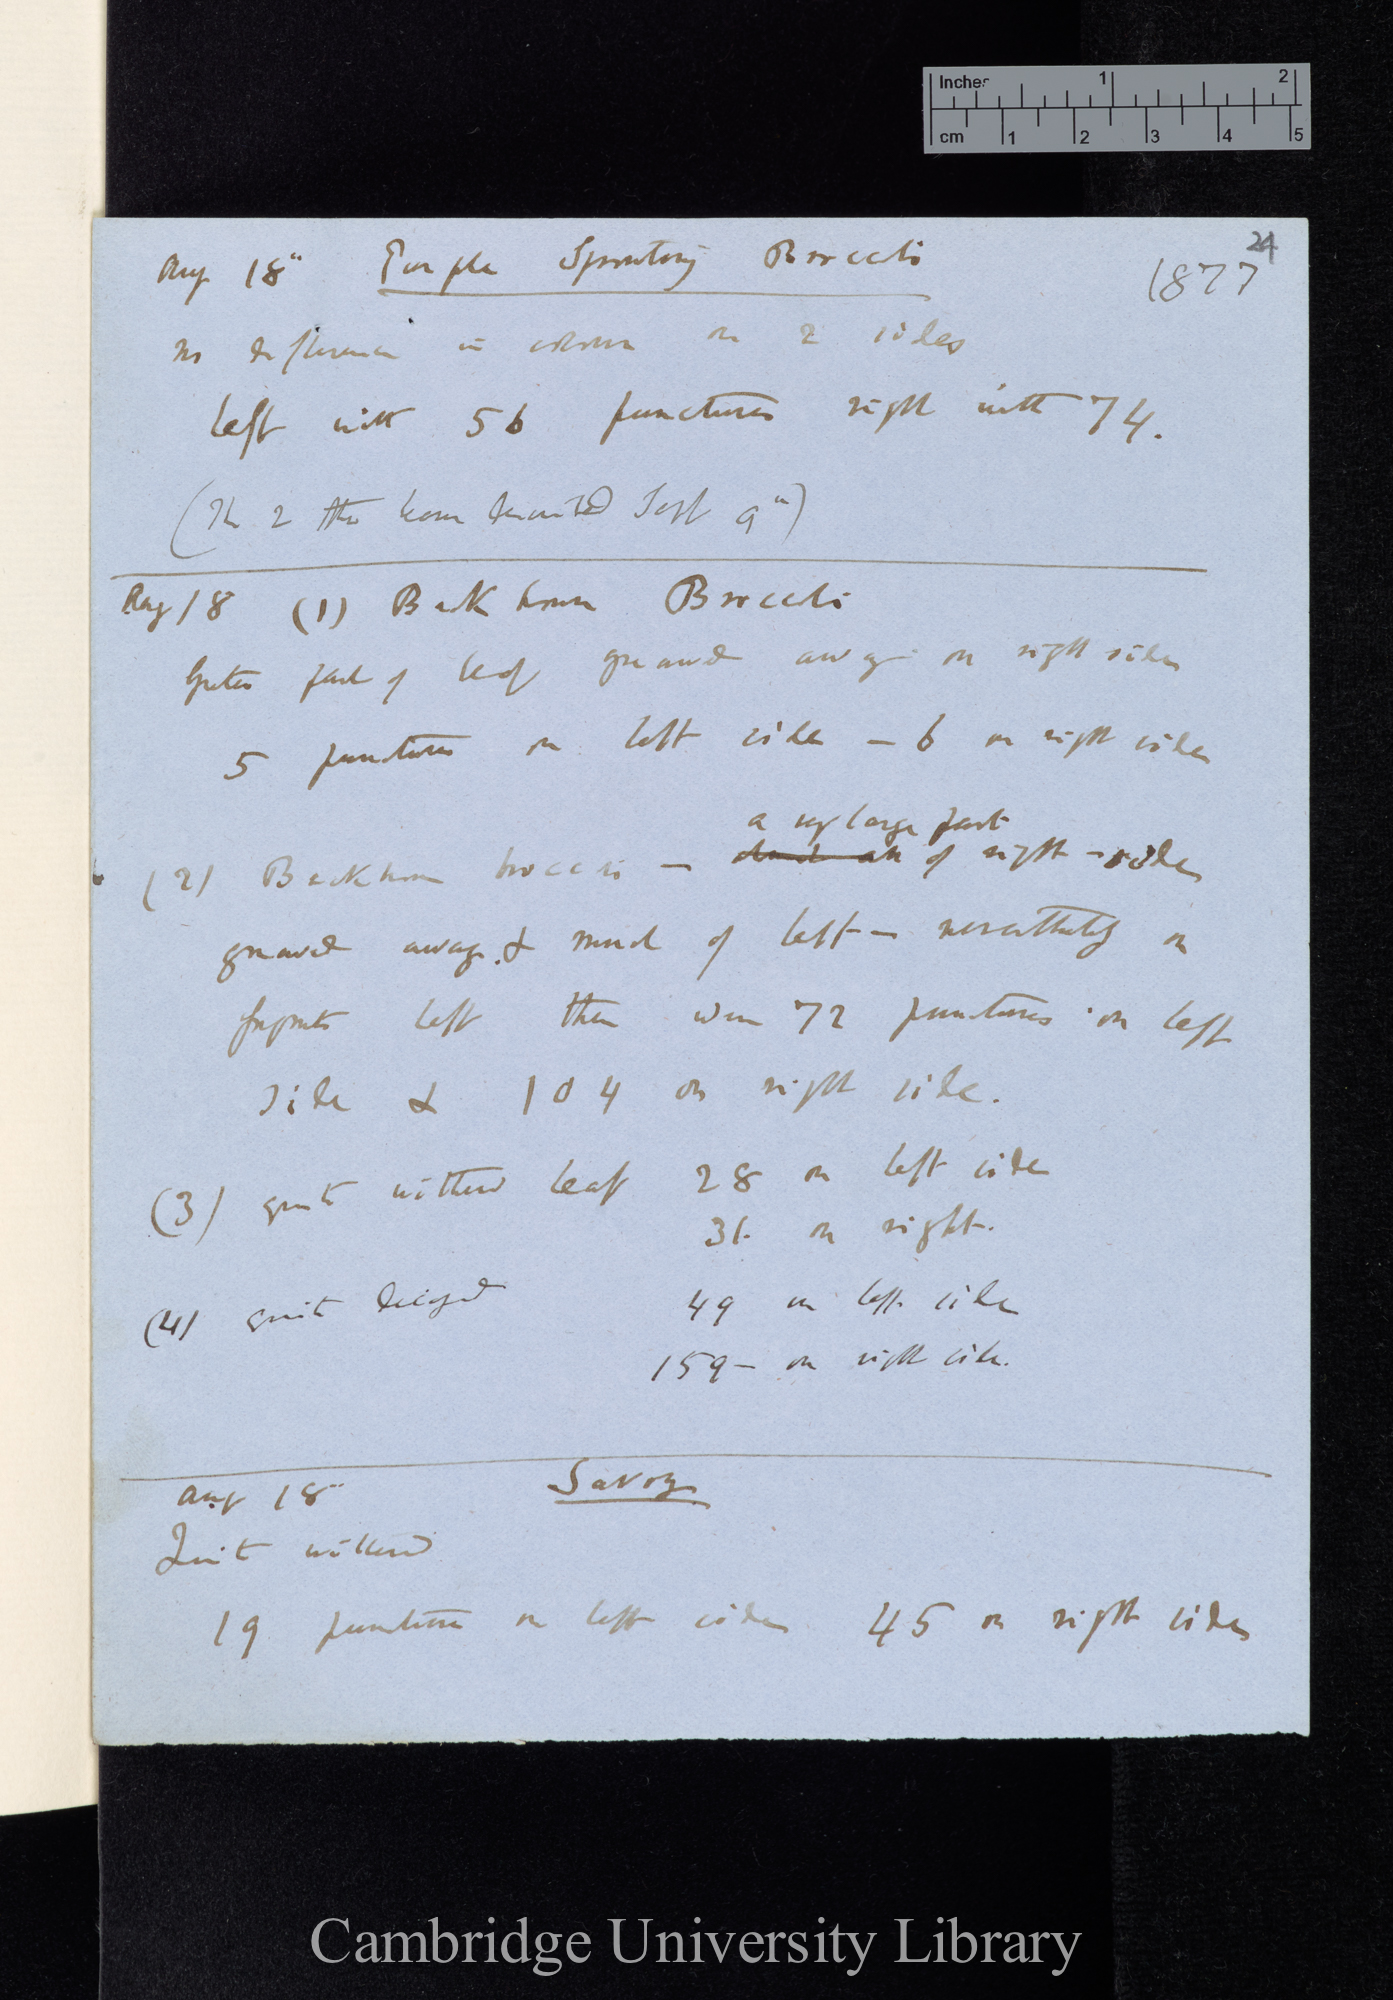 Inches 1 2
cm 1 2 3 4 5
24
Aug 18" Purple Sprouting Broccoli 1877
no difference in colour on 2 sides
left with 56 punctures right with 74.
(The 2 other leaves Sept 9")
Aug 18 (1) Backhouse Broccoli
Greater part of leaf gnawed away on right sides
5 punctures on left side — 6 on right sides
a very large part
(2) Backhouse broccoli — of right — sides
gnawed away. & much of left — nevertheless on
fragments left there were 72 punctures on left
side & 104 on right side.
(3) quite withered leaf 28 on left side
31. on right.
(4) quite decayed 49 on left side
159 — on right side.
Aug 18" Savoy
Quite withered
19 punctures on left sides 45 on right sides
Cambridge University Library